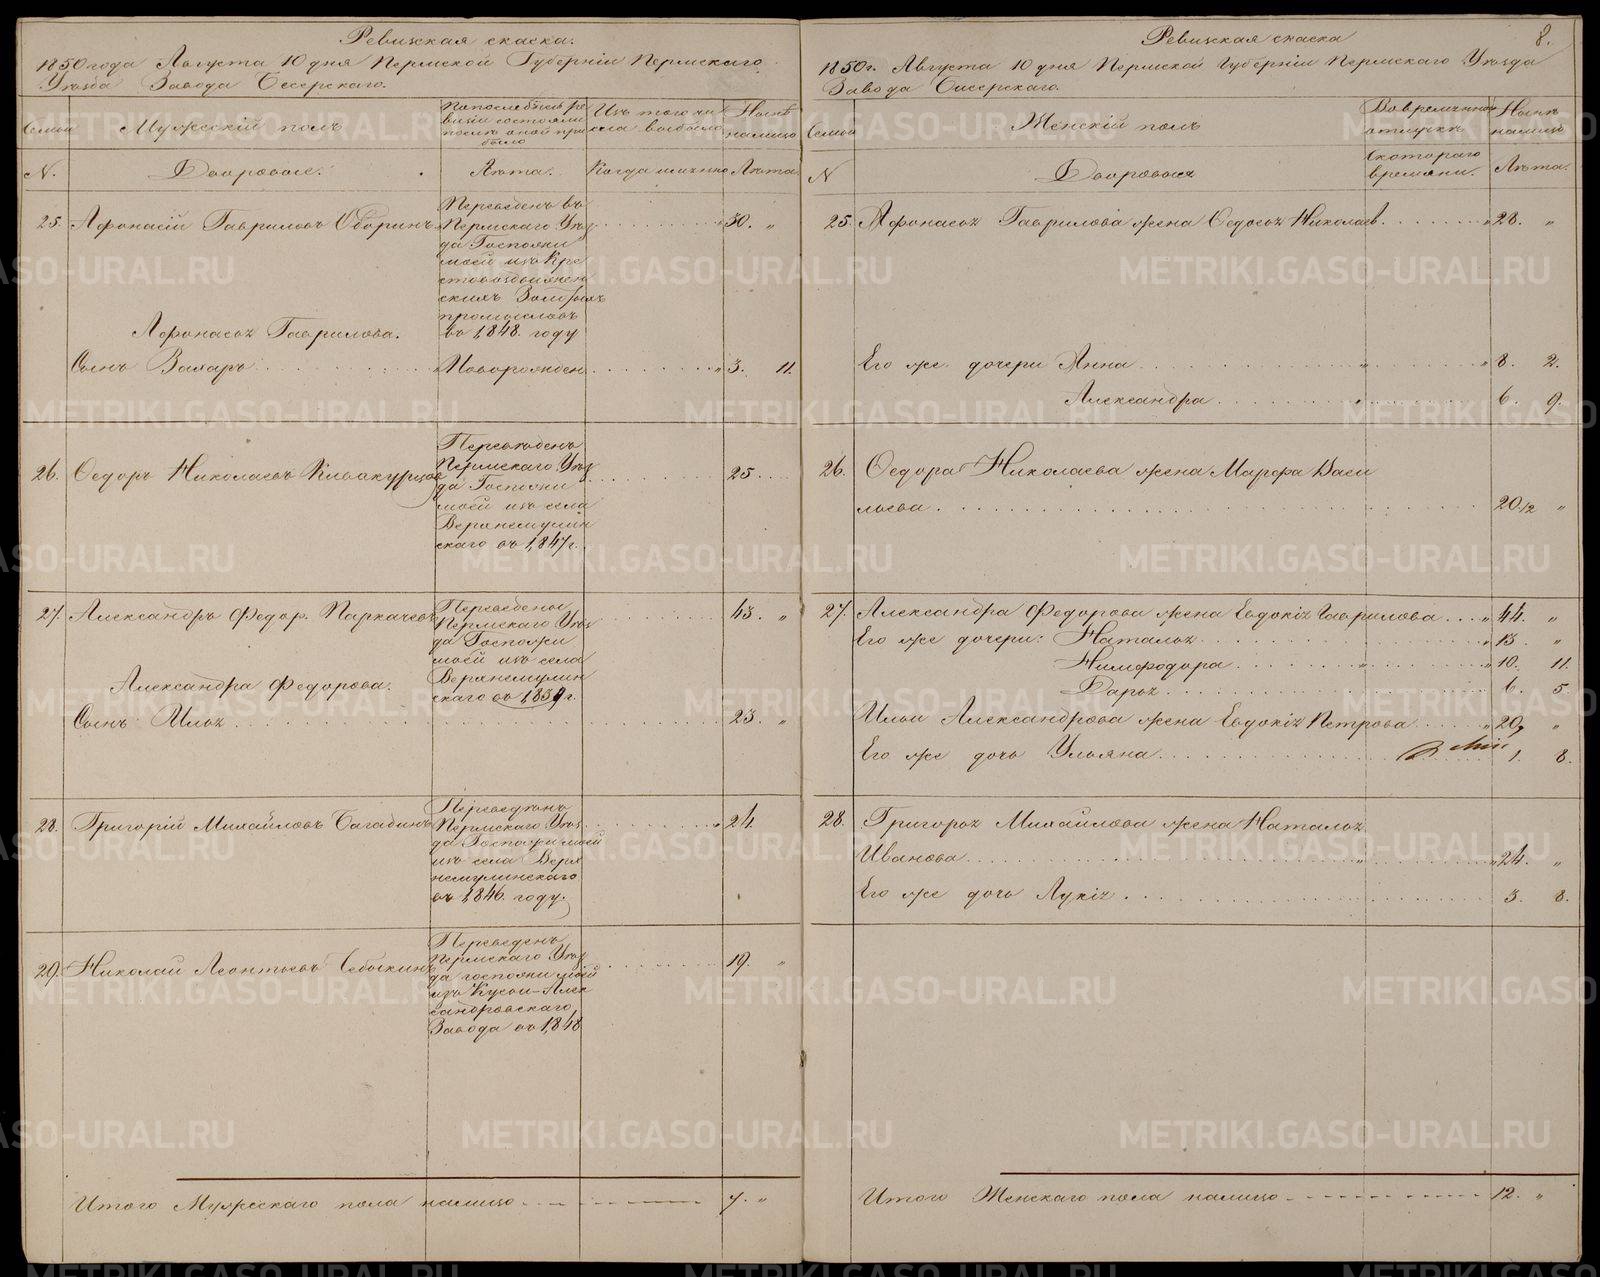 Ревизская скаска.
1850 года Августа 10 дня Пермской Губернiи Пермскаго
Уѣзда Завода Бисерскаго.
Семьи
Мужескiй полъ
По последней ре
визiи состояло
после оной при
было
Изъ того чи
сла выбыло
Нынѣ
налицо
N.
Дворовые.
Лѣта.
Когда именно
Лѣта.
25. Афонасiй Гавриловъ Оборинъ
Переведенъ въ
Пермскаго Уѣз
да Госпожи
моей изъ Кре
стовоздвижен
скихъ Золотыхъ
промысловъ
въ 1,848. году
30. „
Афонасья Гаврилова.
Сынъ Захаръ
Новорожден
3. 11.
26. Федоръ Николаевъ
Переведенъ
Пермскаго Уѣз
да Госпожи
моей изъ села
Верхнемулин
скаго въ 1,847 г.
25
27. Александръ Федор. Паркачевъ
Переведены
Пермскаго Уѣз
да Госпожи
моей изъ села
Верхнемулин
скаго въ г.
43. „
Александра Федорова.
Сынъ Илья
23. „
28. Григорiй Михайловъ
Переведенъ
Пермскаго Уѣз
да Госпожи моей
изъ села Верх
немулинскаго
въ 1,846. году.
24.
29. Николай Леонтьевъ
Переведенъ
Пермскаго Уѣз
да госпожи моей
изъ Кусье-Алек
сандровскаго
Завода въ 1,848
19. „
Итого Мужескаго пола налицо
7. „
Ревизская скаска
8.
1850 г. Августа 10 дня Пермской Губернiи Пермскаго Уѣзда
Завода Бисерскаго.
Семьи
Женскiй полъ
Во временной
отлучкѣ
Нынѣ
налицо
N
Дворовыя
Скотораго
времяни.
Лѣта.
25. Афонасья Гаврилова жена Федосья Николаев. 28. „
Его же дочери Анна 8. 2.
Александра 6. 9.
26. Федора Николаева жена Марфа Васи
льева 20 1/2 „
27. Александра Федорова жена Евдокiя Гаврилова 44. „
Его же дочери: Наталья 13 „
Нимфодора 10. 11.
Дарья 6. 5.
Ильи Александрова жена Евдокiя Петрова 20, „
Его же дочь Ульяна 1. 8.
28. Григорья Михайлова жена Наталья
Иванова 24. „
Его же дочь Лукiя 3. 8.
Итого Женскаго пола налицо 12. „
METRIKI.GASO-URAL.RU